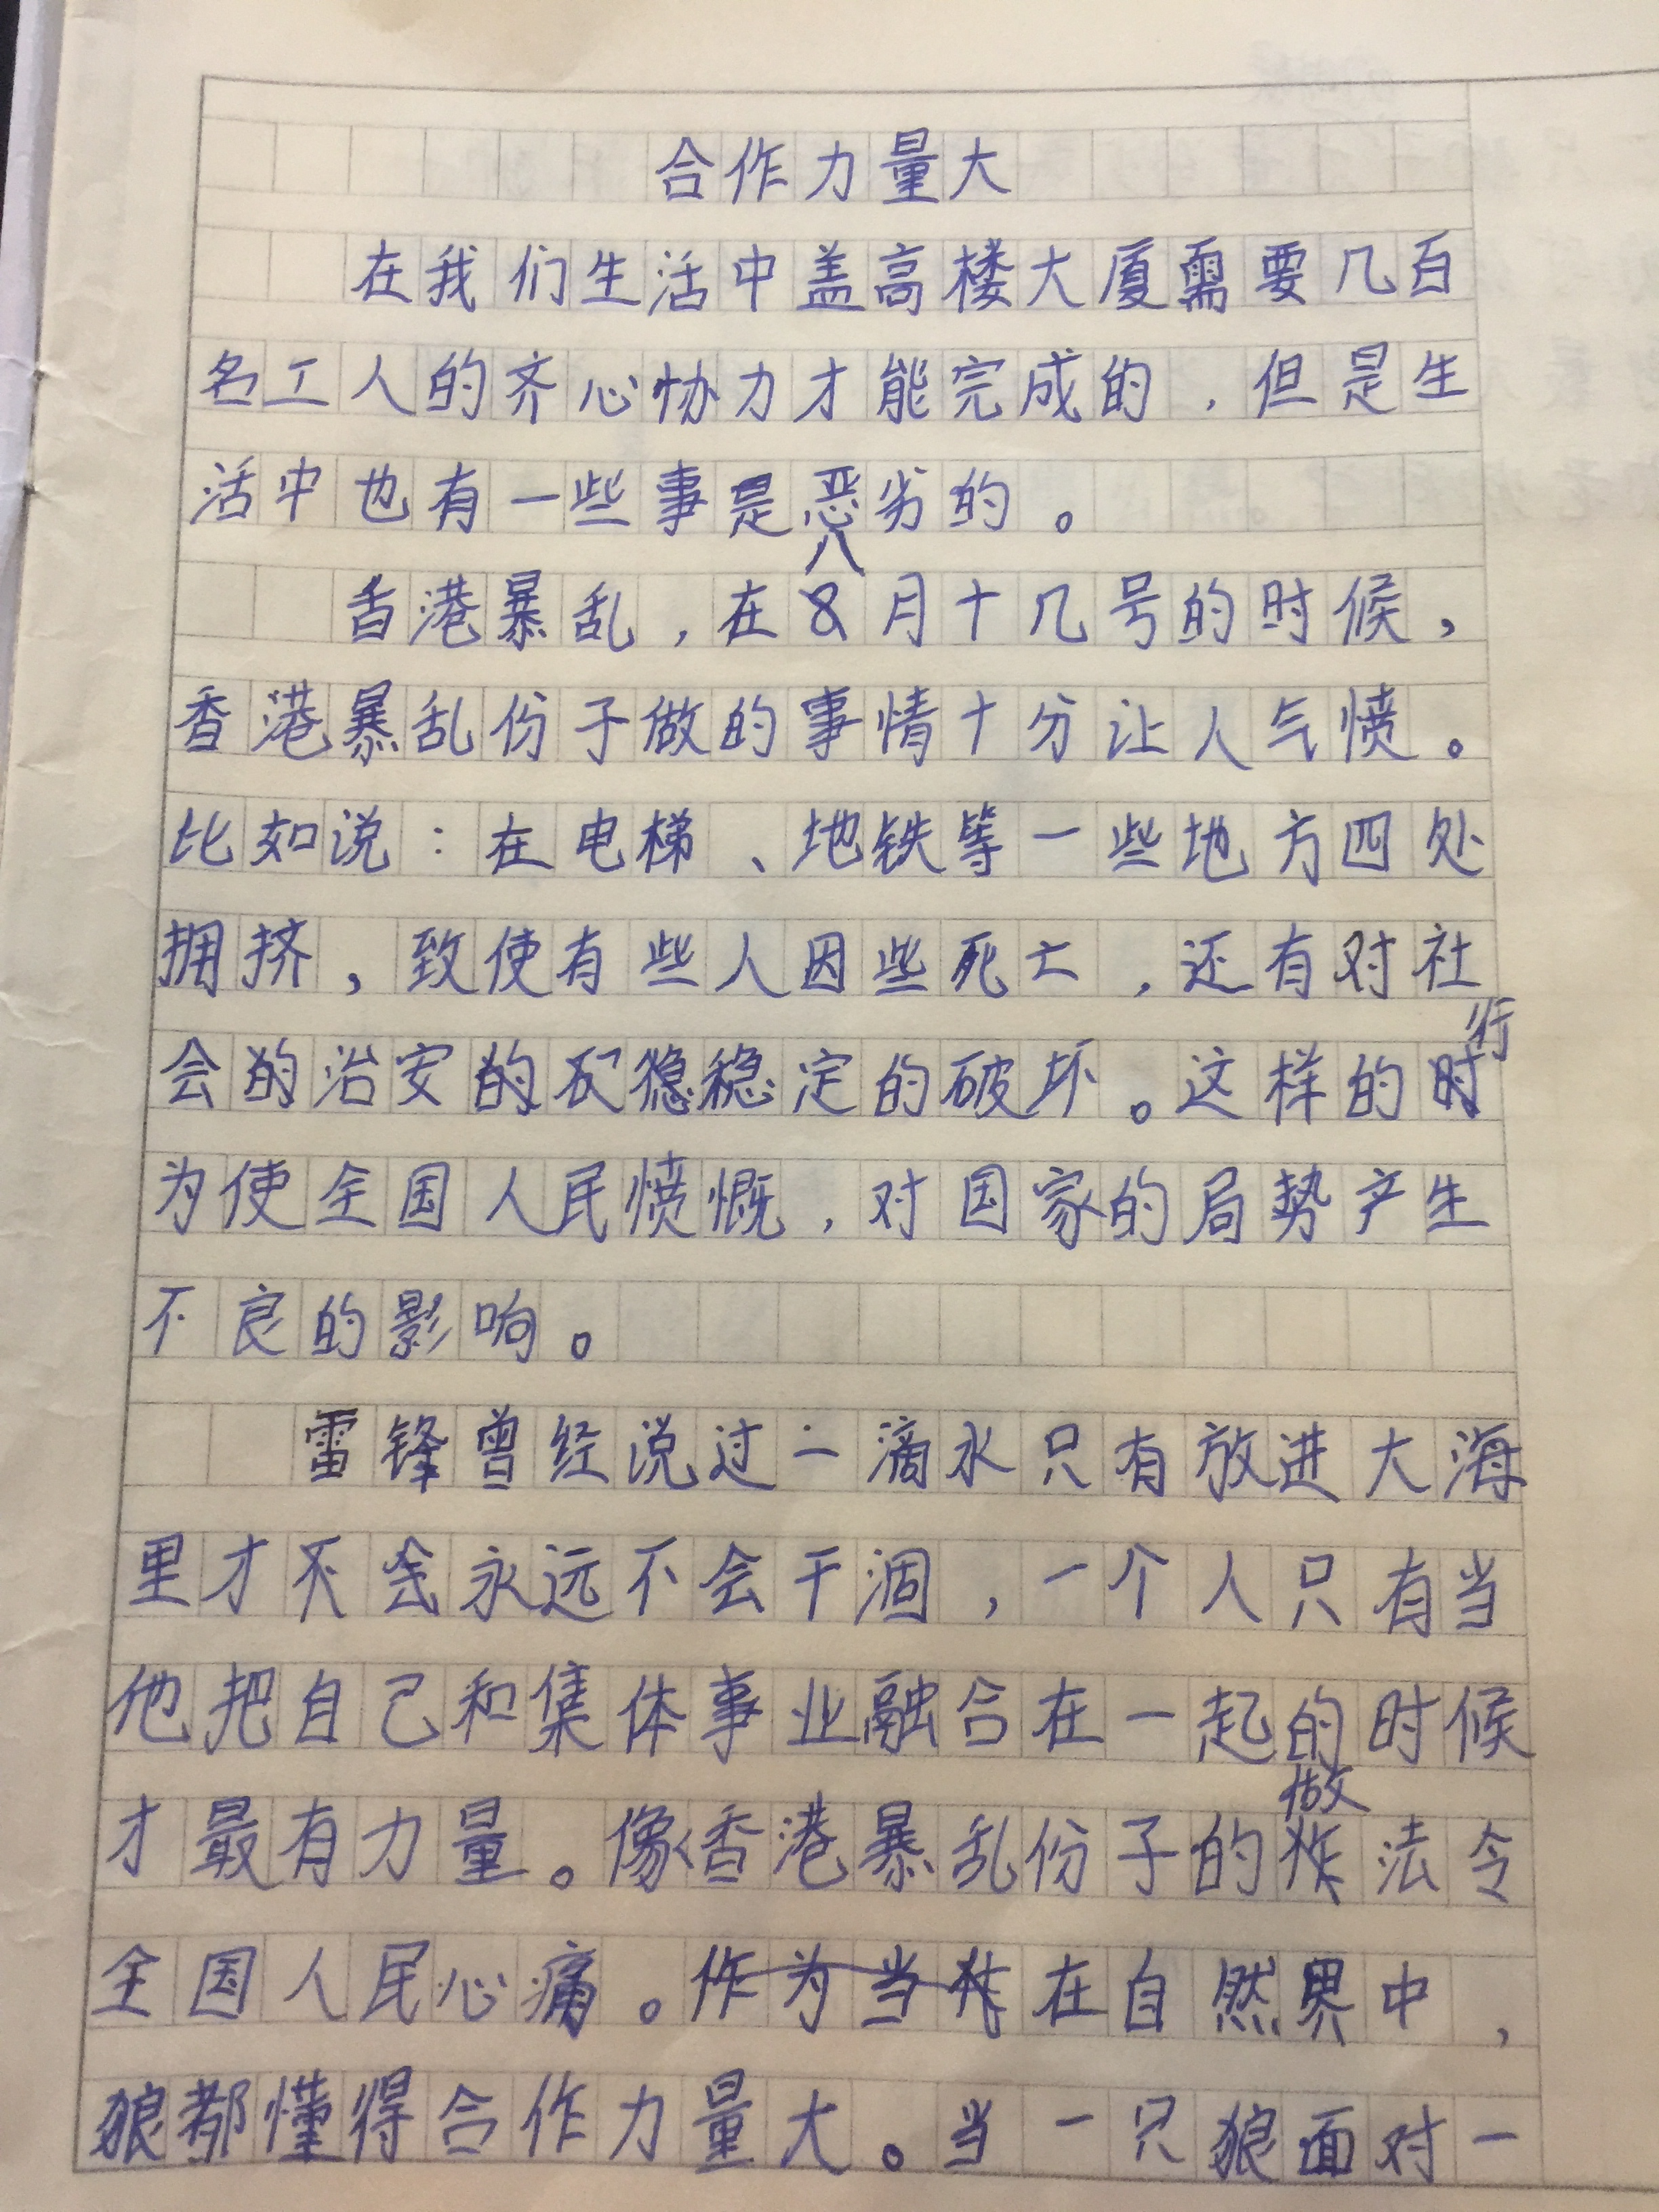 合作力量大
在我们生活中盖高楼大厦需要几百
名工人的齐心协力才能完成的，但是生
活中也有一些事是恶劣的。
香港暴乱，在八月十几号的时候，
香港暴乱份子做的事情十分让人气愤。
比如说：在电梯、地铁等一些地方四处
拥挤，致使有些人因些死亡，还有对社
会的治安的稳定的破坏。这样的行
为使全国人民愤慨，对国家的局势产生
不良的影响。
雷锋曾经说过：一滴水只有放进大海
里才永远不会干涸，一个人只有当
他把自己和集体事业融合在一起的时候
才最有力量。像香港暴乱份子的做法令
全国人民心痛。在自然界中，
狼都懂得合作力量大。当一只狼面对一